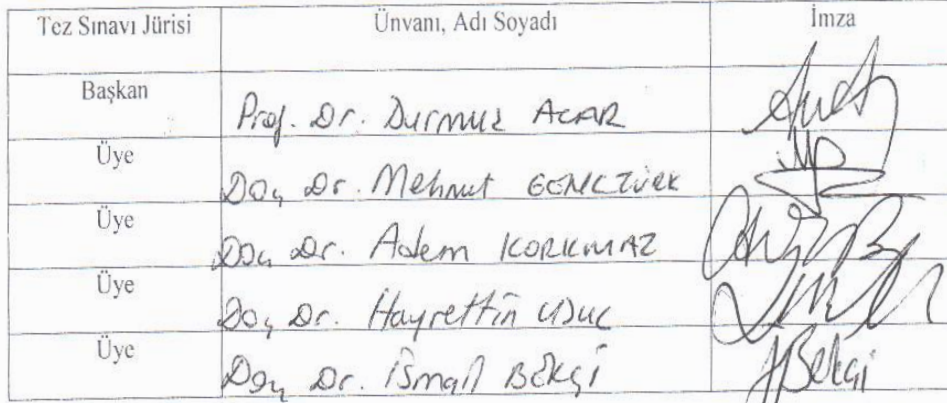 Tez Sınavı Jürisi Ünvanı, Adı Soyadı İmza
Başkan Prof. Dr. Durmuş ACAR
Üye Doç Dr. Mehmet GENÇTÜRK
Üye Doç Dr. Adem KORKMAZ
Üye Doç Dr. Hayrettin
Üye Doç Dr. İsmail BEKÇİ Bekçi